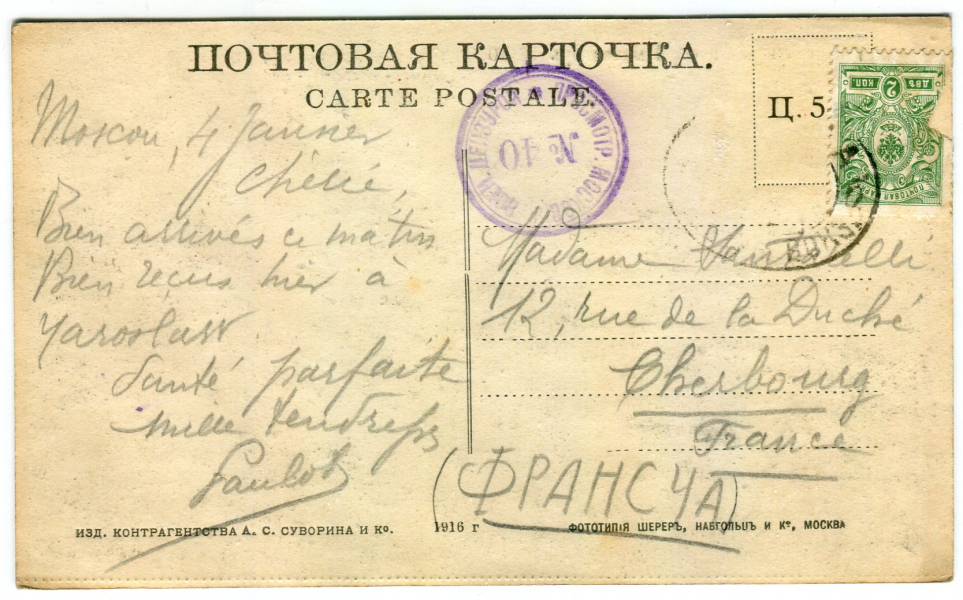 ПОЧТОВАЯ КАРТОЧКА.
CARTE POSTALE.
Ц. 5
2
ДВѢ КОП
ПОЧТОВАЯ МАРКА
ВОЕН. ЦЕНЗУРОЙ ПРОСМОТР. МОСКВА
№ 40
МОСКВА
Moscou, 4 Janvier
Chérie,
Bien arrivés ce matin
Bien reçus hier à
Yaroslaw
Santé parfaite
Mille tendresses
Paulot
Madame
12, rue de la Duché
Cherbourg
France
(ФРАНСЧА)
ИЗД. КОНТРАГЕНТСТВА А. С. СУВОРИНА И Ко.
1916 г
ФОТОТИПІЯ ШЕРЕРЪ, НАБГОЛЬЦЪ И Ко, МОСКВА